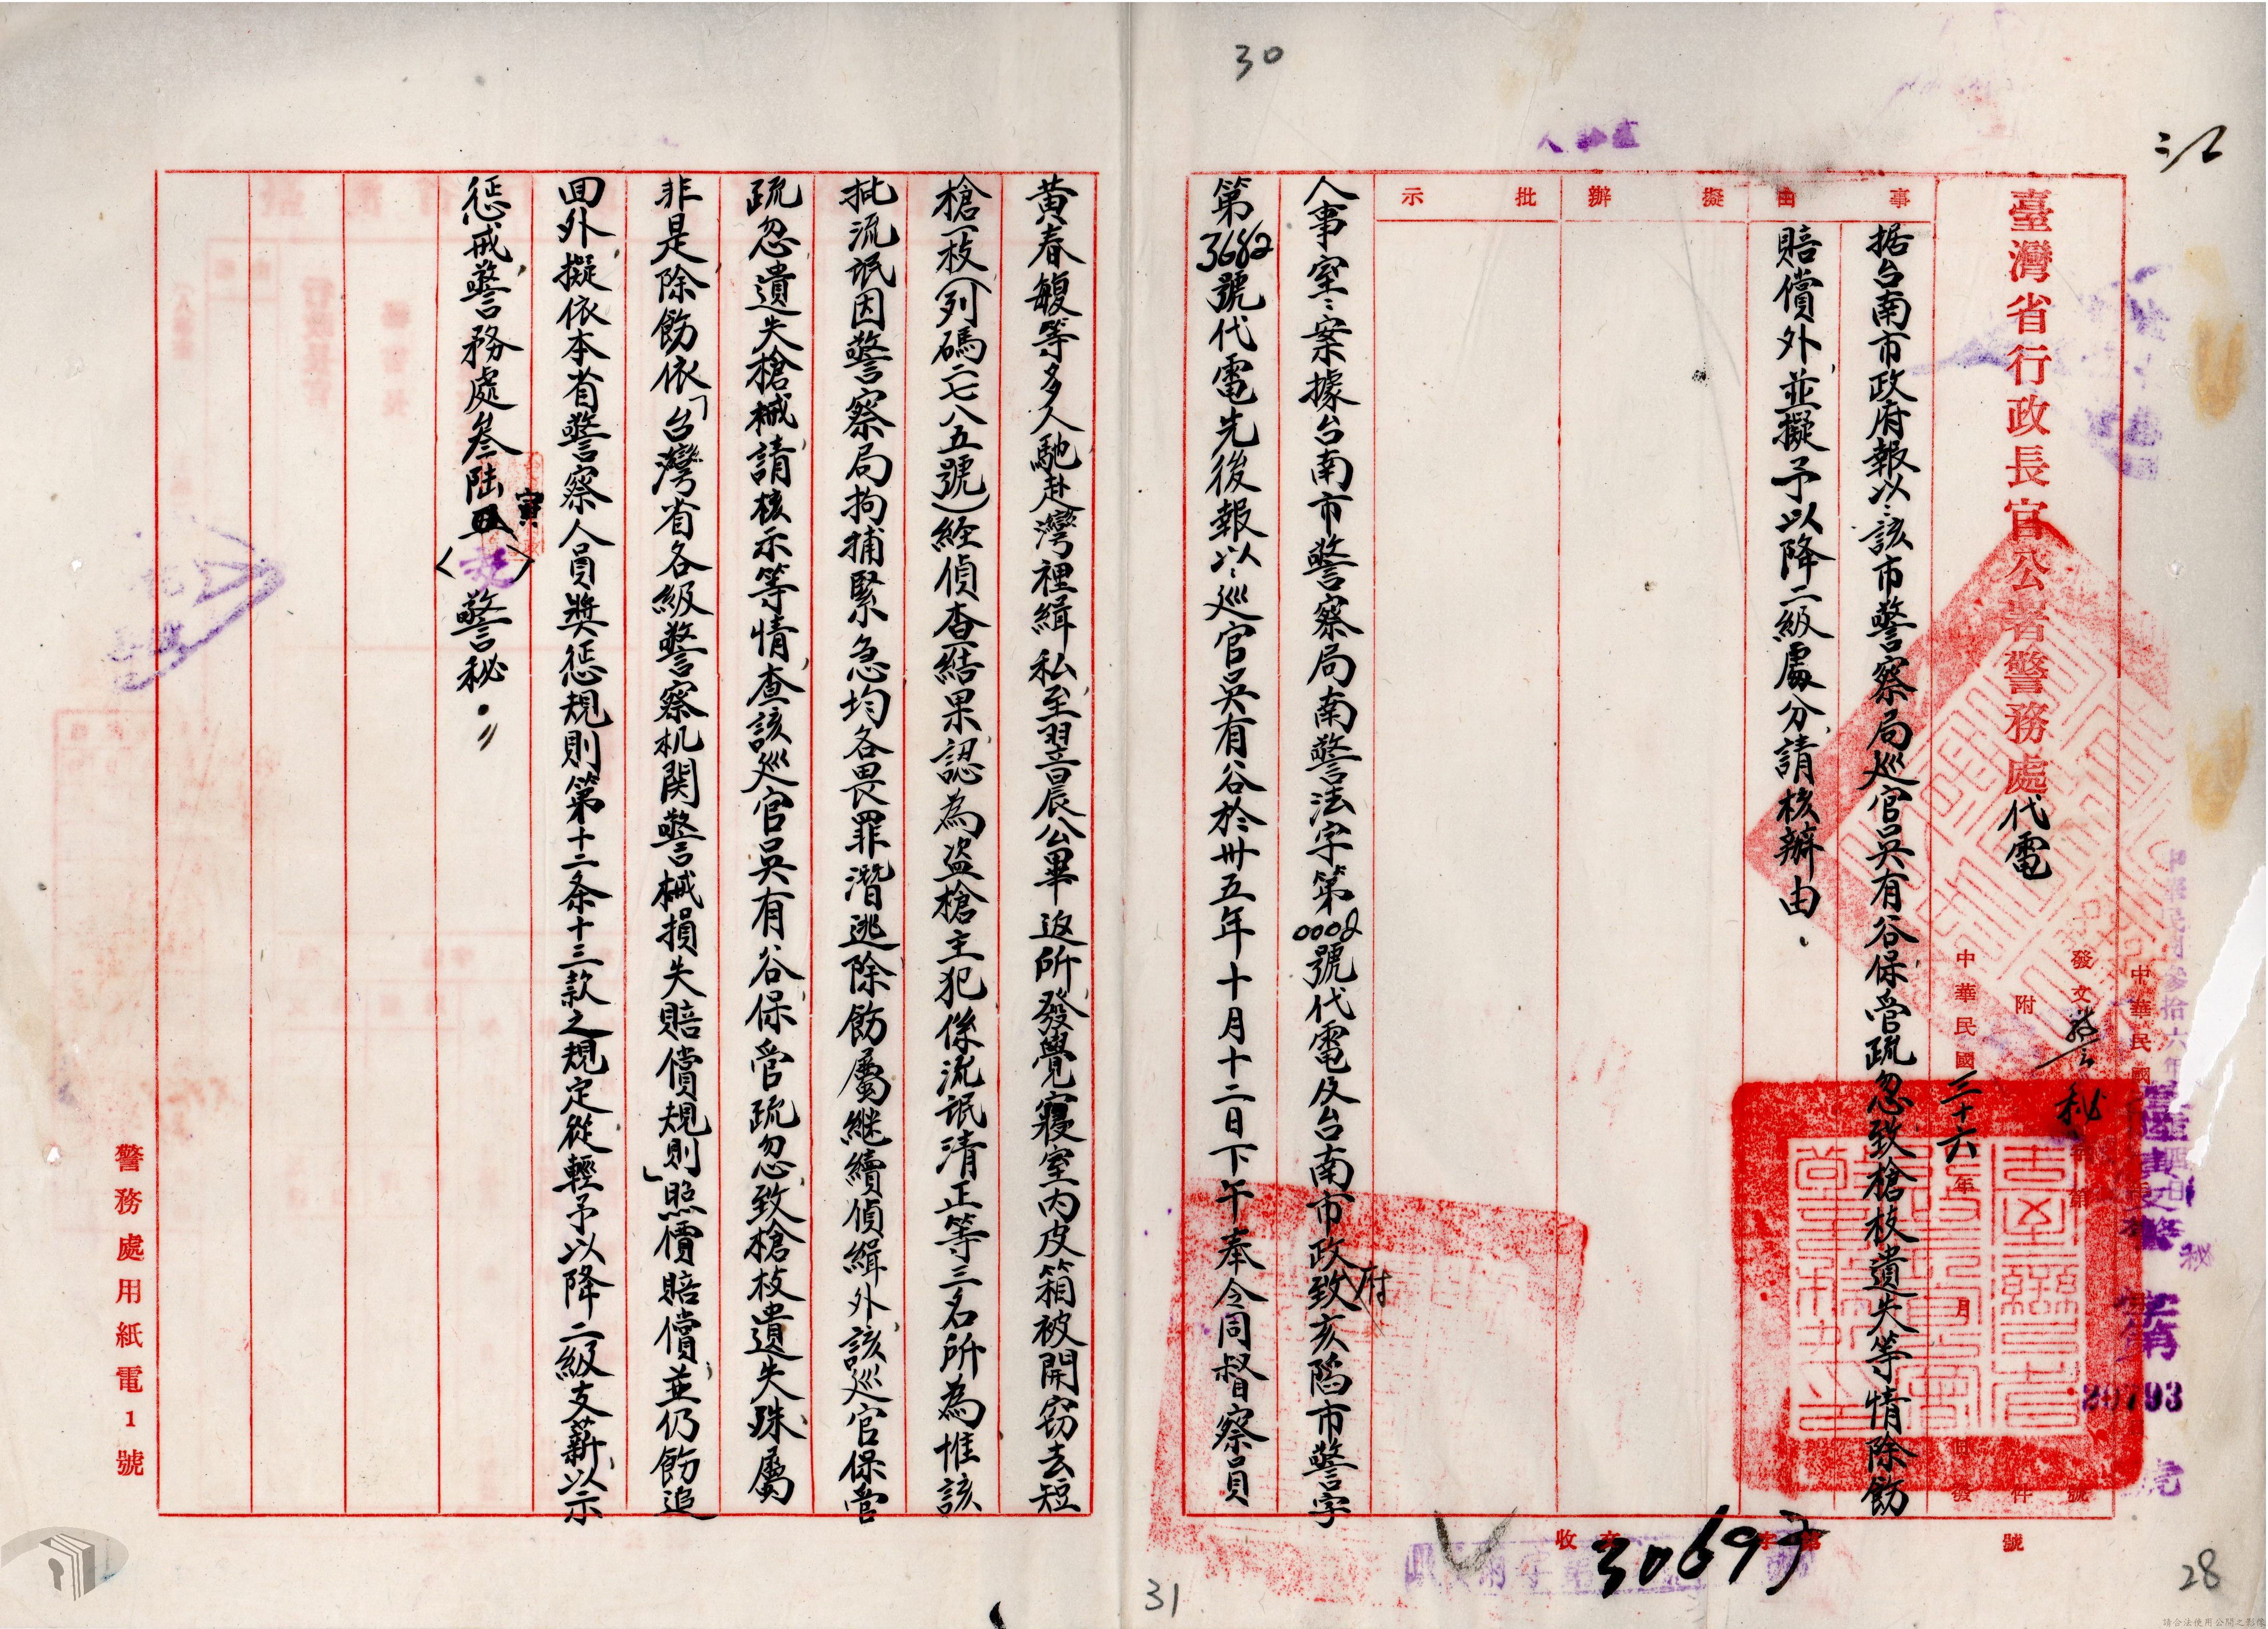 30
臺灣省行政長官公署警務處代電
事由
擬辦
批示
据台南市政府報以：該市警察局巡官吳有谷保管疏忽致槍枝遺失等情除飭
賠償外並擬予以降二級處分請核辦由
發文
號
附件
中華民國三十六年 月 日發
人事室：案據台南市警察局南警法字第0002號代電及台南市政府致亥陷市警字
第3682號代電先後報以：巡官吳有谷於卅五年十月十二日下午奉令同督察員
黃春馥等多人馳赴灣裡緝私至翌晨公畢返所發覺寢室內皮箱被開窃去短
槍一枝（列碼二七八五號）経偵查結果認為盗槍主犯係流氓清正等三名所為惟該
批流氓因警察局拘捕緊急均各畏罪潛逃除飭屬継續偵緝外該巡官保管
疏忽遺失槍械請核示等情查該巡官吳有谷保管疏忽致槍枝遺失殊屬
非是除飭依「台灣省各級警察机関警械損失賠償規則」照價賠償並仍飭追
回外擬依本省警察人員奬惩規則第十二条十三款之規定從輕予以降二級支薪以示
惩戒警務處叁陆寅〈〉警秘
警務處用紙電1號
收文 字第 號
30693
31
28